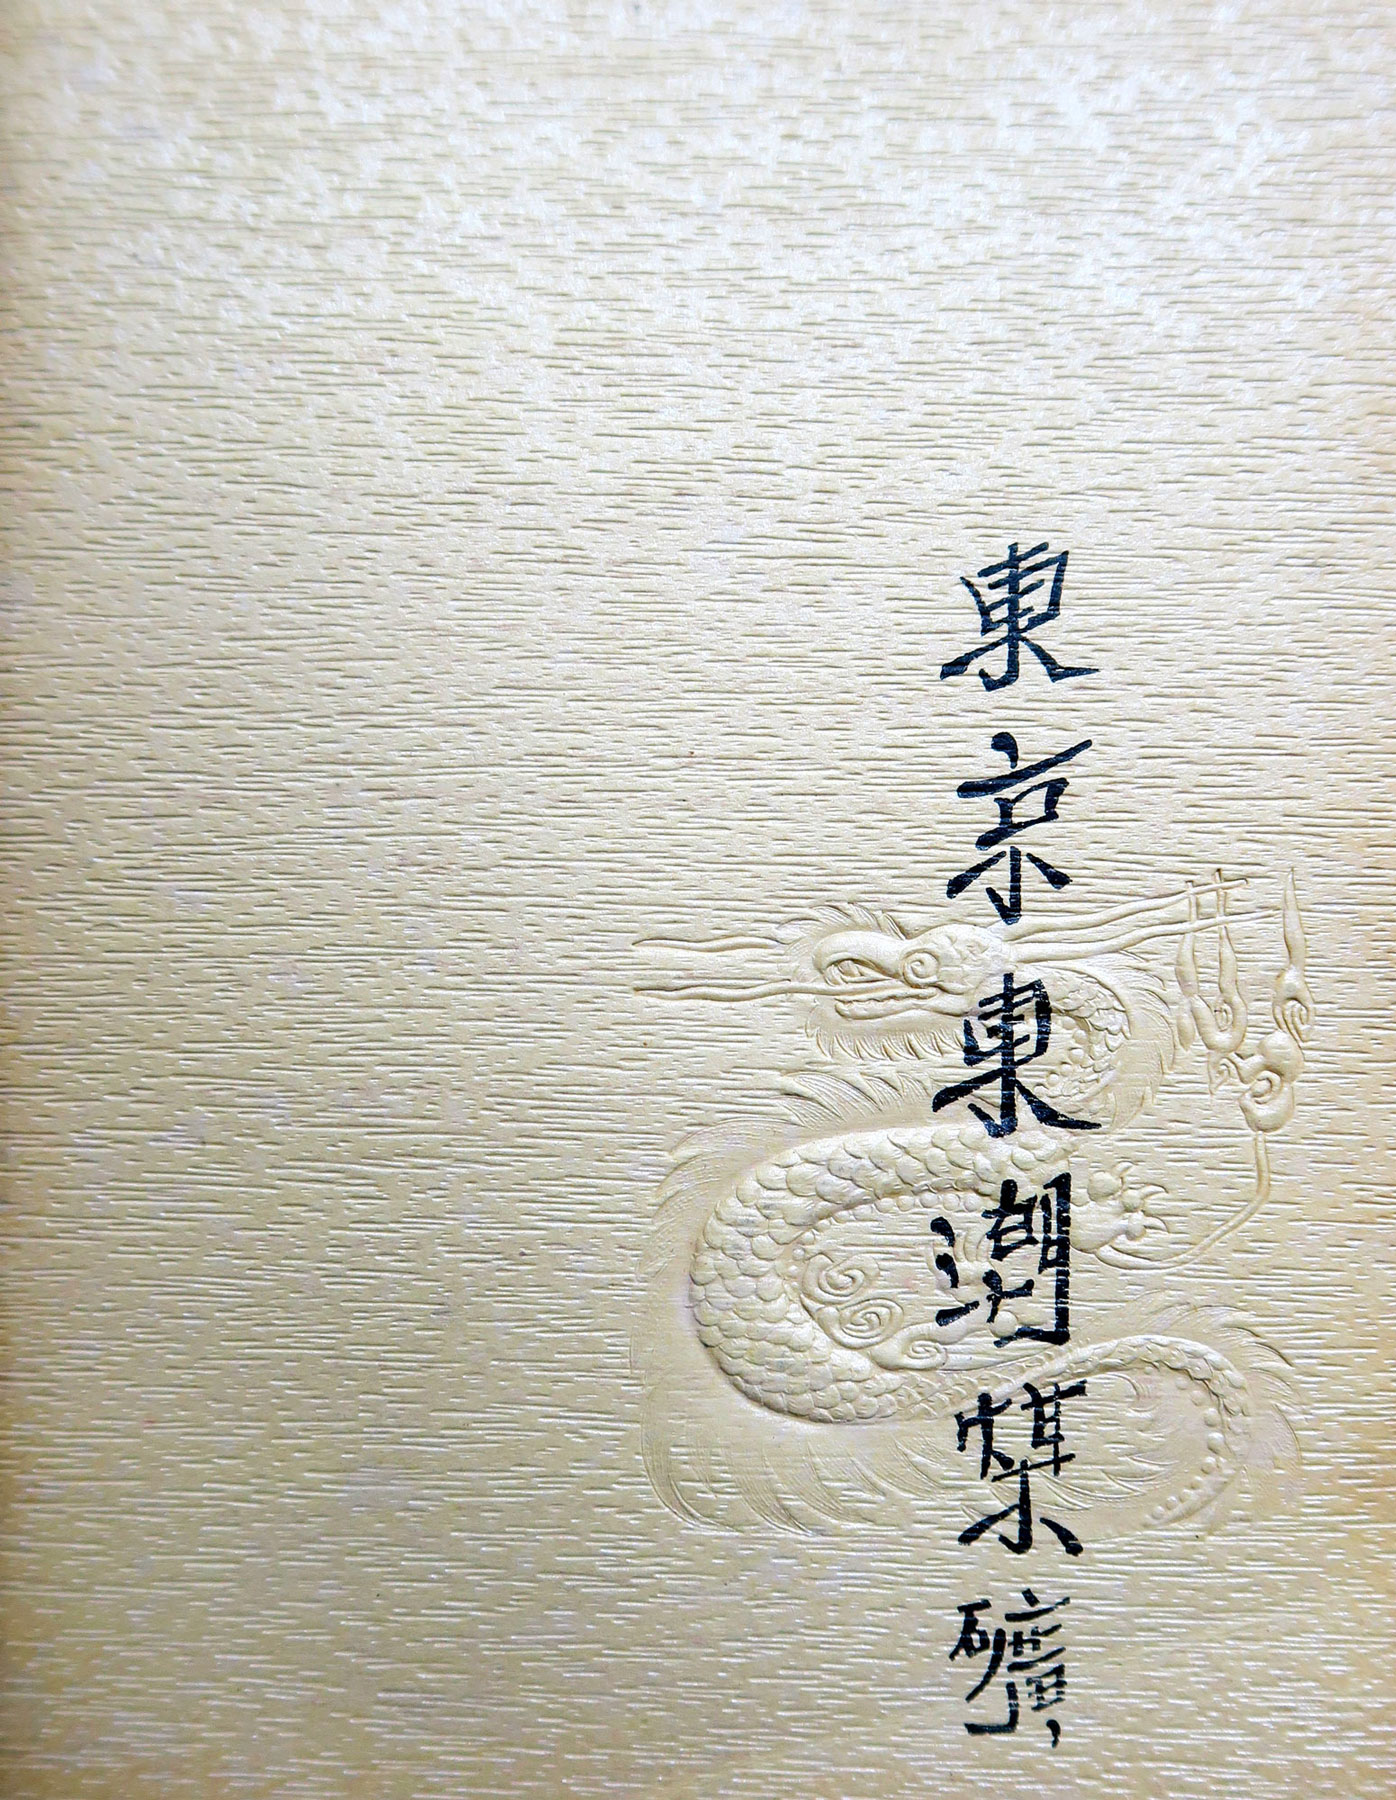 東京東潮煤礦